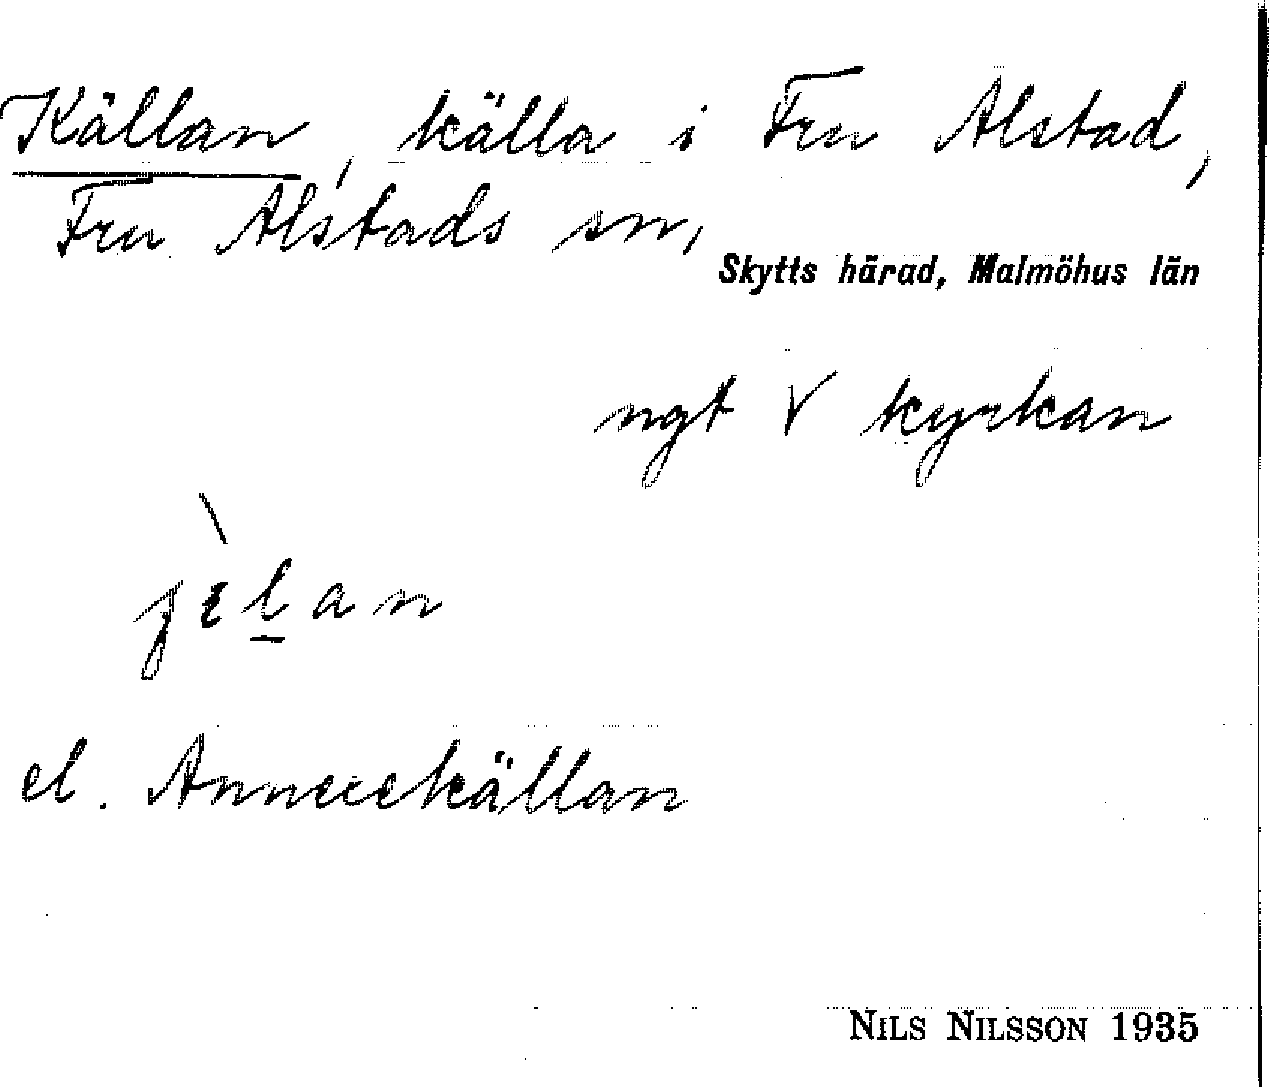 Källan, källa i Fru Alstad,
Fru Alstads sn,
Skytts härad, Malmöhus län
ngt V kyrkan
el.
NILS NILSSON 1935